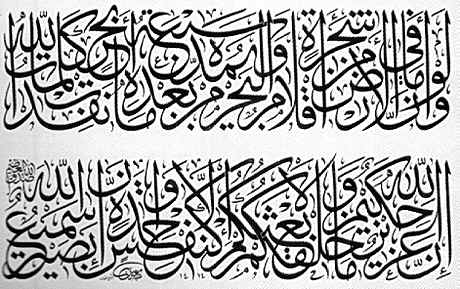 ولو أنما في الأرض من شجرة أقلام والبحر يمده من بعده سبعة أبحر ما نفدت كلمات الله
إن الله عزيز حكيم ما خلقكم ولا بعثكم إلا كنفس واحدة إن الله سميع بصير